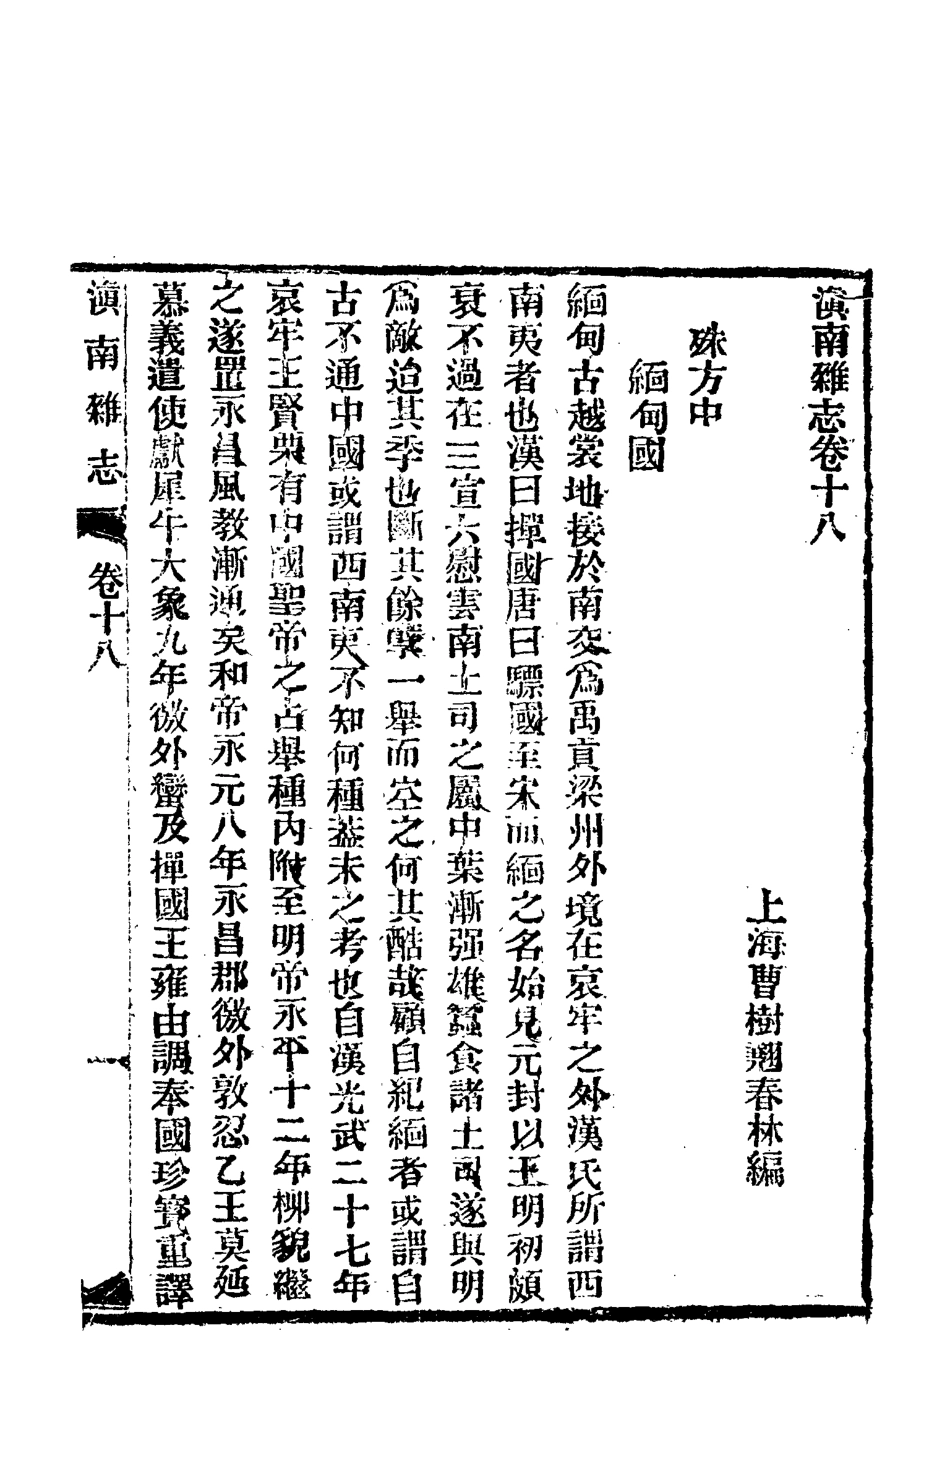 滇南雜志卷十八
上海曹樹翹春林編
殊方中
緬甸國
緬甸古越裳地接於南交爲禹貢梁州外境在哀牢之外漢氏所謂西
南夷者也漢曰撣國唐曰驃國至宋而緬之名始見元封以王明初頗
衰不過在三宣六慰雲南土司之屬中葉漸强雄蠶食諸土司遂與明
爲敵迨其季也斷其餘孽一舉而空之何其酷哉顧自紀緬者或謂自
古不通中國或謂西南夷不知何種蓋未之考也自漢光武二十七年
哀牢王賢栗有中國聖帝之占舉種内附至明帝永平十二年柳貌繼
之遂置永昌風教漸通矣和帝永元八年永昌郡徼外敦忍乙王莫延
慕義遣使獻犀牛大象九年徼外蠻及撣國王雍由調奉國珍寶重譯
滇南雜志 卷十八 一